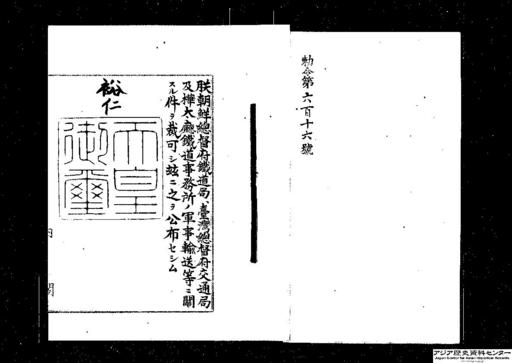 勅令第六百十六號
朕朝鮮總督府鐵道局、臺灣總督府交通局
及樺太廳鐵道事務所ノ軍事輸送等ニ關
スル件ヲ裁可シ茲ニ之ヲ公布セシム
裕仁
天皇
御璽
内閣
アジア歴史資料センター
Japan Center for Asian Historical Records